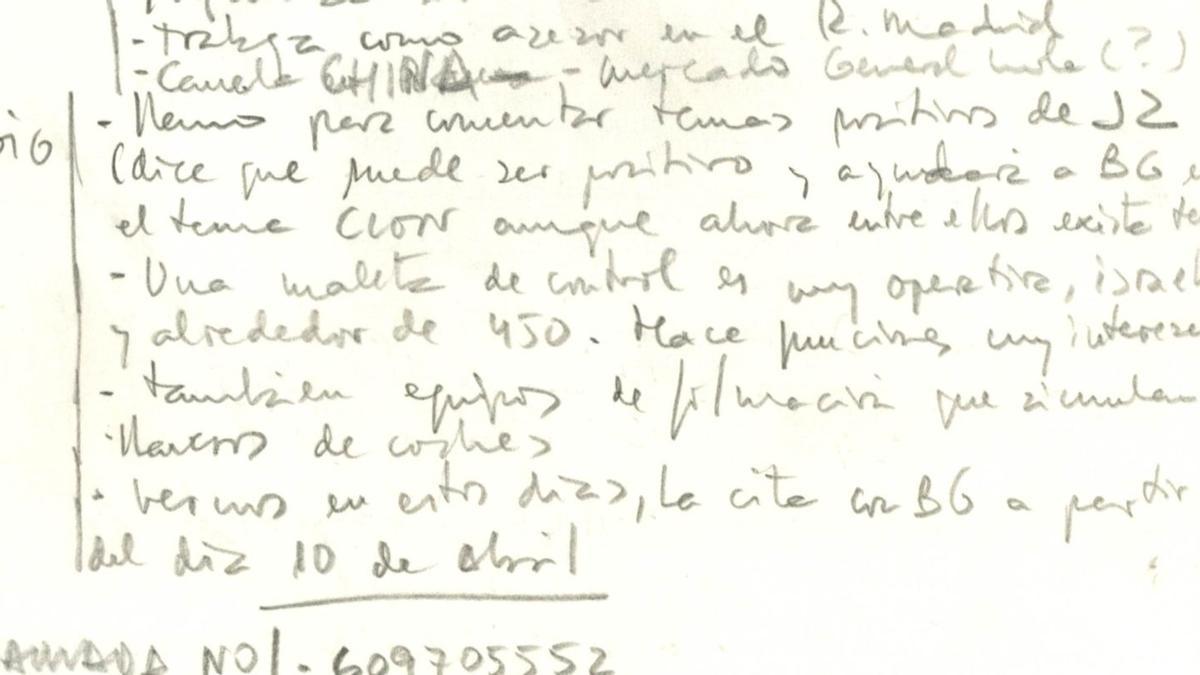 - trabaja como asesor en el R. Madrid
- Canada CHINA - mercado General Mola (?)
- Llamo para comentar temas positivos de JZ
(dice que puede ser positivo y ayudaria a BG
el tema CLON aunque ahora entre ellos existe
- Una maleta de control es muy operativa, israel
y alrededor de 450. Hace funciones muy interesa
- también equipos de filmación que simulan
llaveros de coches
- vernos en estos dias, la cita con BG a partir
del dia 10 de abril
NOI. 609705552